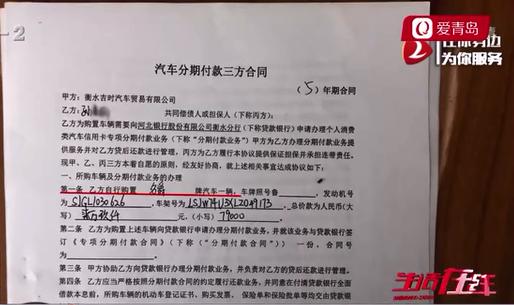 -2
爱青岛
在你身边
为你服务
汽车分期付款三方合同
(5)年期合同
甲方:衡水吉时汽车贸易有限公司
乙方:
共同偿债人或担保人(下称丙方):
乙方为购置车辆需要向河北银行股份有限公司衡水分行(下称贷款银行)申请办理个人消费
类汽车信用卡专项分期付款业务(下称"分期付款业务")甲方为乙方办理分期付款业务申请
提供服务并对乙方贷后还款进行管理,丙方为乙方履行本协议提供保证担保并承担连带责任。
现甲、乙、丙三方本着自愿的原则,经友好协商,就上述相关事宜达成协议如下:
一、所购车辆及分期付款业务的办理
第一条 乙方自行购置 牌汽车一辆,车牌照号 ,发动机号
为 SJGL1030626 ,车架号为 ,总价款为人民币(大
写) 柒万玖仟 元,(小写) 79000
第二条 乙方为购置上述车辆向贷款银行申请办理分期付款业务,并就该业务与贷款银行签
订《专项分期付款合同》(下称"分期付款合同")一份,合同号
为
第三条 甲方协助乙方向贷款银行办理分期付款业务,并负责对乙方的贷后还款进行管理。
第四条 乙方应当严格按照分期付款合同的约定履行还款义务,并同意在付清贷款银行全面
借款本息前,所购车辆的机动车登记证书、购买发票、保险单和保险批单等均交由贷款银
生活在线